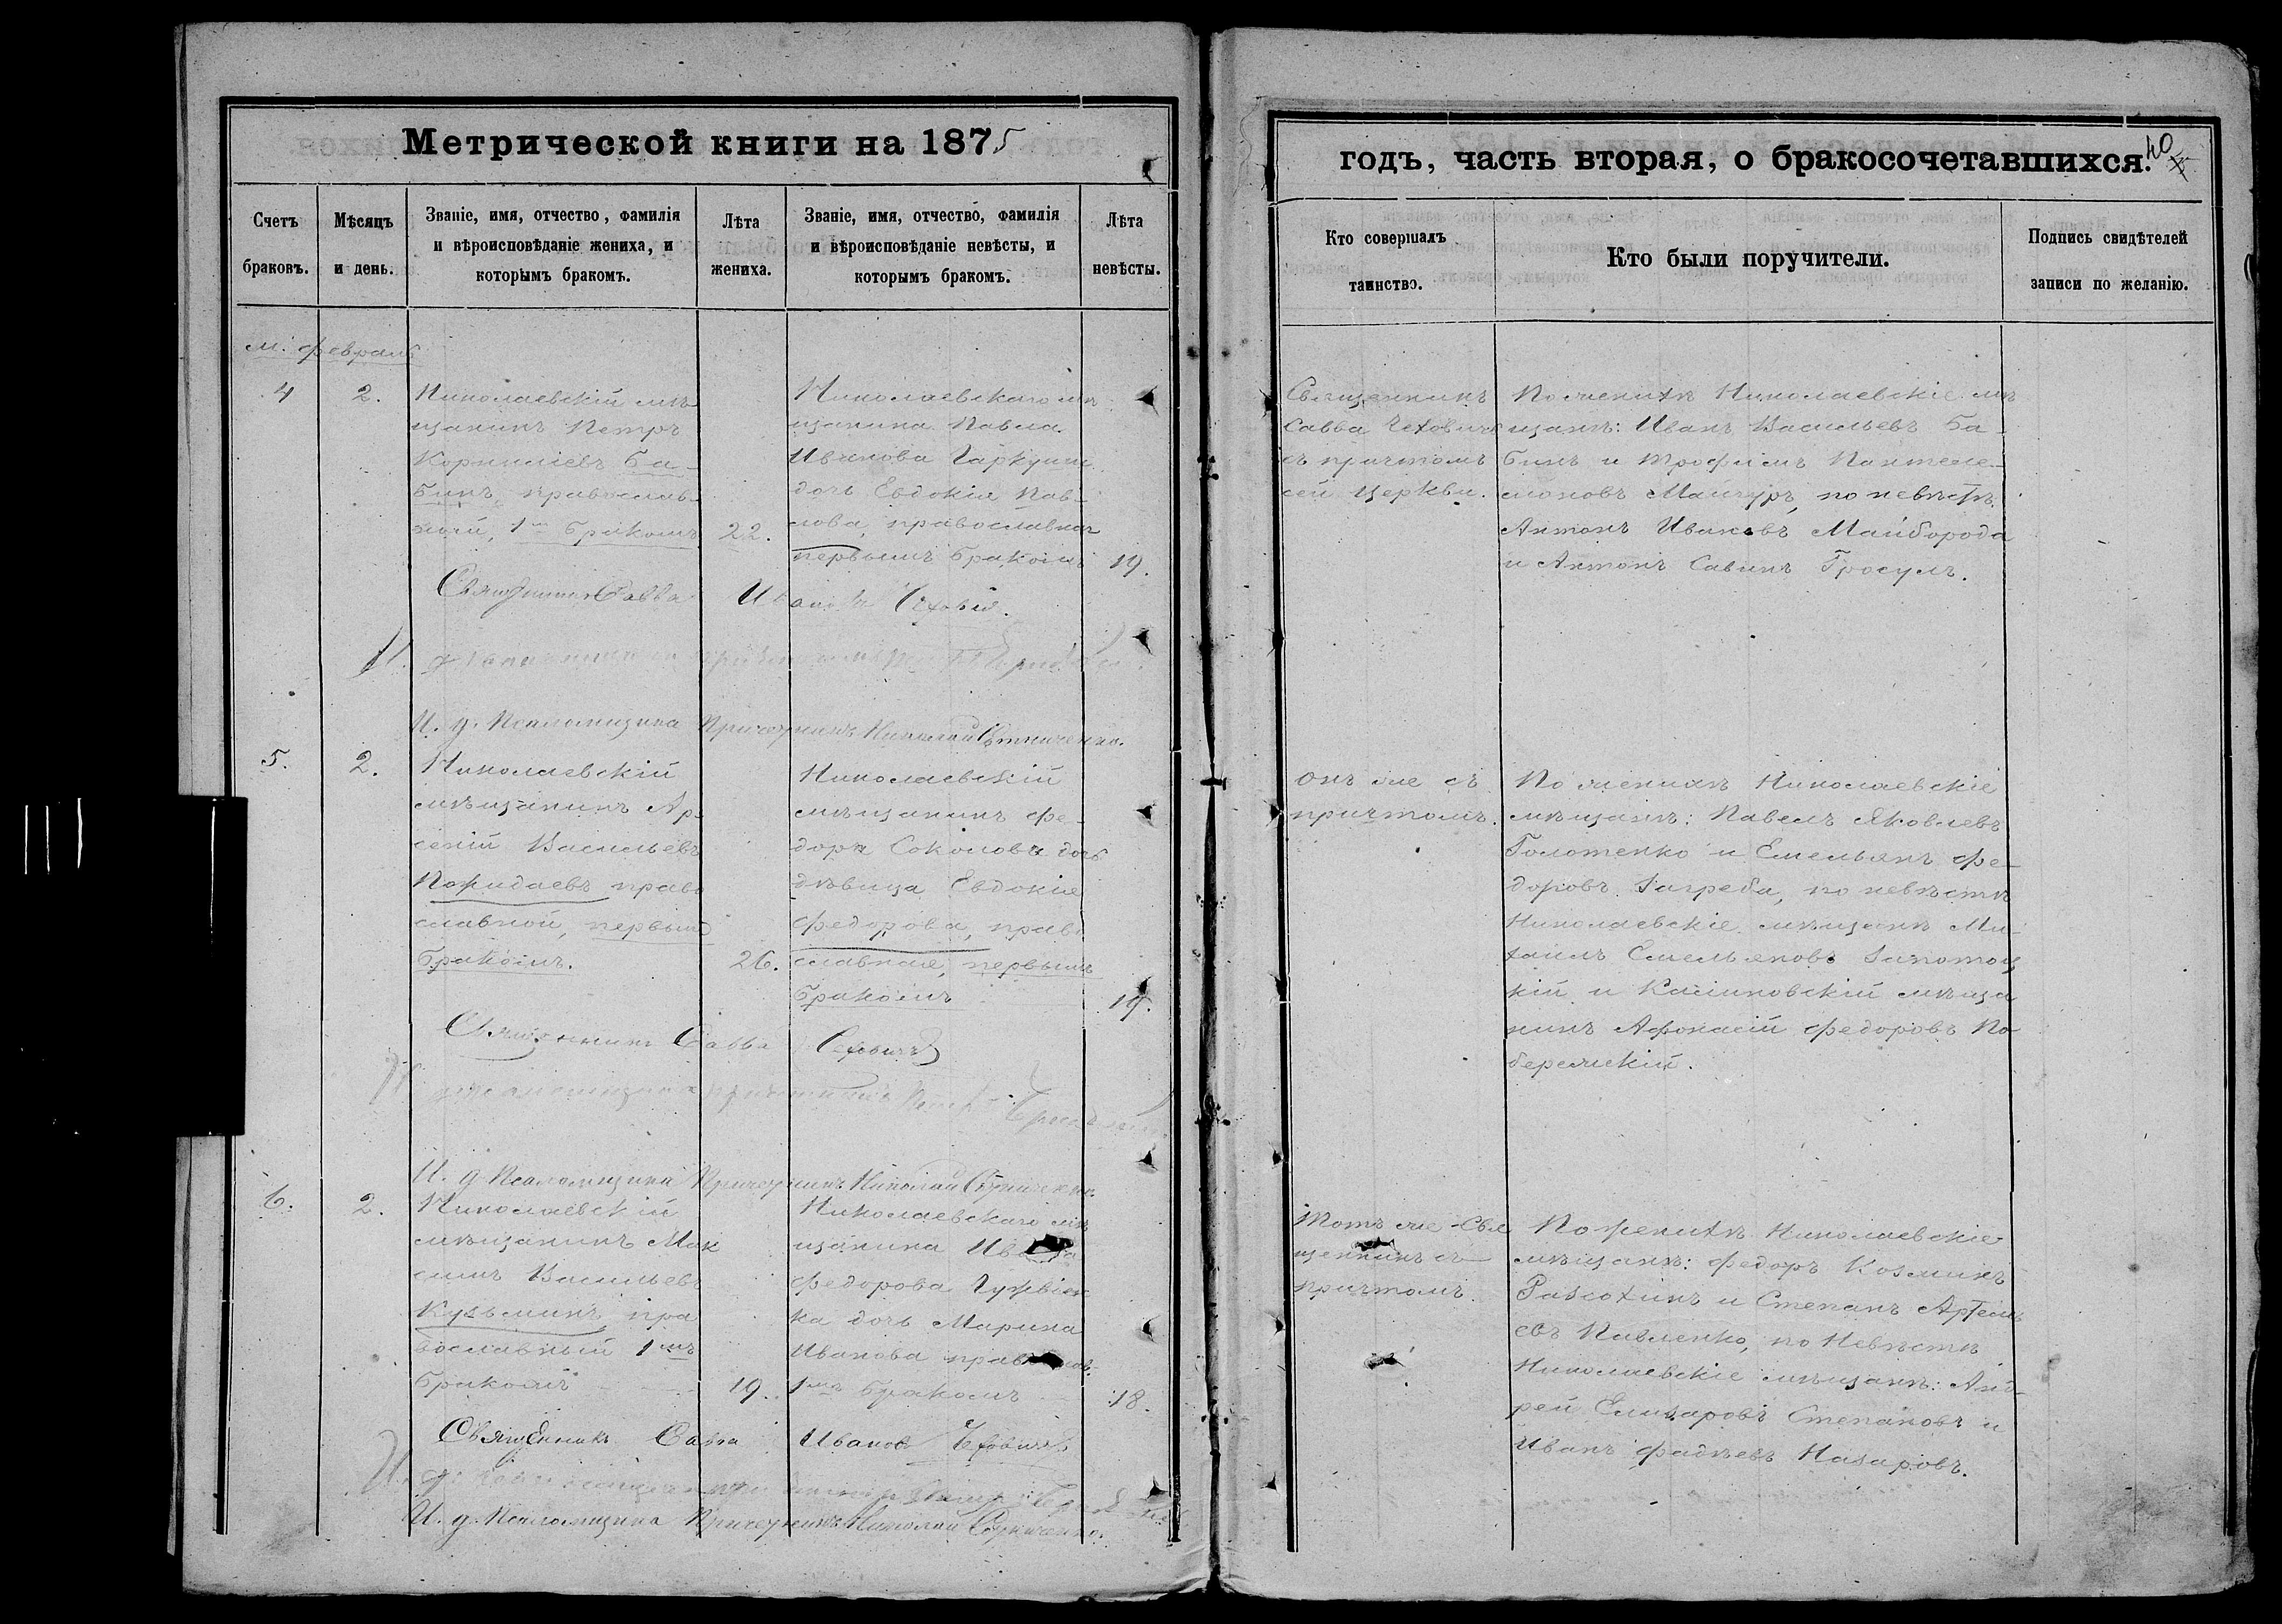 Метрической книги на 1875
Счетъ браковъ.
Мѣсяцъ и день.
Званіе, имя, отчество, фамилія
и вѣроисповѣданіе жениха, и
которымъ бракомъ.
Лѣта жениха.
Званіе, имя, отчество, фамилія
и вѣроисповѣданіе невѣсты, и
которымъ бракомъ.
Лѣта невѣсты.
м. февраль
4
2.
Николаевскій мѣ-
щанинъ Петръ
Корниліевъ Ба-
бинъ, православ-
ный, 1мъ бракомъ
22.
Николаевскаго мѣ
щанина Павла
Иванова Гаркуши
дочь Евдокія Пав-
лова, православная
первымъ бракомъ
19.
Священникъ Савва Ивановъ Чеховичъ.
И. д. Псаломщика Причетникъ Николай
5.
2.
Николаевскій
мѣщанинъ Ар-
сеній Васильевъ
Пожидаевъ право
славной, первымъ
бракомъ.
26.
Николаевскій
мѣщанинъ Фе-
дора Соколова дочь
дѣвица Евдокія
Федорова, право
славная, первымъ
бракомъ
19.
Священникъ Савва Чеховичъ
И. д. Псаломщика Причетникъ Николай
6.
2.
Николаевскій
мѣщанинъ Мак
симъ Васильевъ
Кузьминъ, пра
вославный 1мъ
бракомъ
19.
Николаевскаго мѣ
щанина Ивана
Федорова
ка дочь Марина
Иванова
1мъ бракомъ
18.
Священникъ Савва Ивановъ Чеховичъ
И. д. Псаломщика Причетникъ Николай
годъ, часть вторая, о бракосочетавшихся.
40
Кто совершалъ таинство.
Кто были поручители.
Подпись свидѣтелей записи по желанію.
Священникъ
Савва Чеховичъ
съ причтомъ
сей церкви.
По женихѣ Николаевскіе мѣ
щане: Иванъ Васильевъ Ба-
бинъ и Трофимъ Пантеле-
моновъ Манчуръ, по невѣстѣ
Антонъ Ивановъ Майборода
и Антонъ Савинъ Гросулъ.
онъ же съ
причтомъ.
По женихѣ Николаевскіе
мѣщане: Павелъ Яковлевъ
Голотенко и Емельянъ Фе-
доровъ Загреба, по невѣстѣ
Николаевскіе мѣщане Ми-
хаилъ Емельяновъ Запотоц
кій и мѣща
нинъ Афонасій Федоровъ По
бережскій.
Тотъ же Свя
щенникъ съ
причтомъ.
По женихѣ Николаевскіе
мѣщане: Федоръ Козминъ
Разсохинъ и Степанъ Артемь
евъ Павленко, по Невѣстѣ
Николаевскіе мѣщане: Анд-
рей Елизаровъ Степановъ и
Иванъ Фадѣевъ Назаровъ.